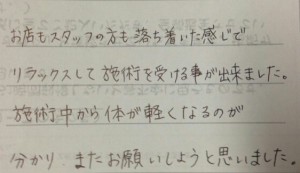 お店もスタッフの方も落ち着いた感じで
リラックスして施術を受ける事が出来ました。
施術中から体が軽くなるのが
分かり またお願いしようと思いました。